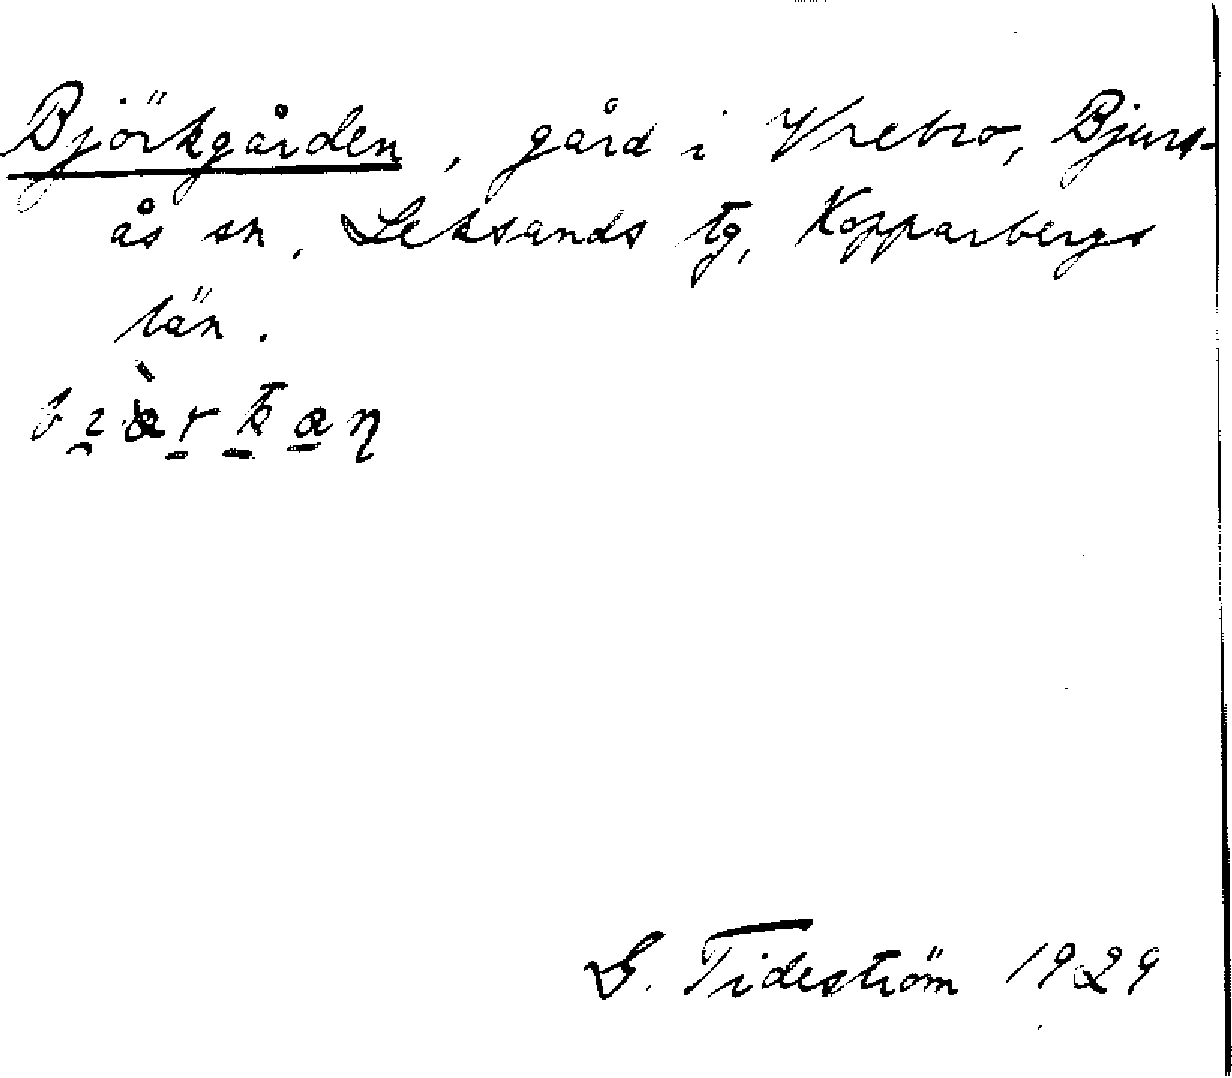 Björkgården, gård i Vrebro, Bjurs-
ås sn, Leksands tg, Kopparbergs
län.
G. Tideström 1929